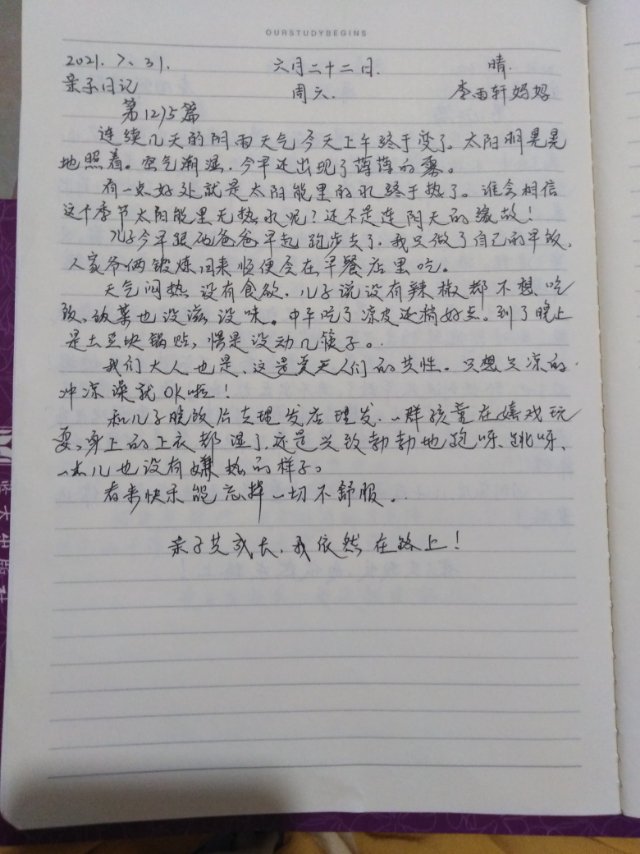 OURSTUDYBEGINS
2021.7、31. 六月二十二日. 晴.
亲子日记 周六. 李雨轩妈妈
第1215篇
连续几天的阴雨天气今天上午终于变了。太阳明晃晃
地照着。空气潮湿,今早还出现了薄薄的雾。
有一点好处就是太阳能里的水终于热了。谁会相信
这个季节太阳能里无热水呢?还不是连阴天的缘故!
儿子今早跟他爸爸早起跑步去了,我只做了自己的早饭,
人家爷俩锻炼回来顺便会在早餐店里吃。
天气闷热没有食欲,儿子说没有辣椒都不想吃
饭,饭菜也没滋没味。中午吃了凉皮还稍好点。到了晚上
是土豆块锅贴,愣是没动几筷子。
我们大人也是,这是夏天人们的共性。只想吃凉的
冲凉澡就OK啦!
和儿子晚饭后去理发店理发,一群孩童在嬉戏玩
耍,身上的上衣都湿了,还是兴致勃勃地跑呀、跳呀、
一点儿也没有嫌热的样子。
看来快乐能忘掉一切不舒服。
亲子共成长,我依然在路上!